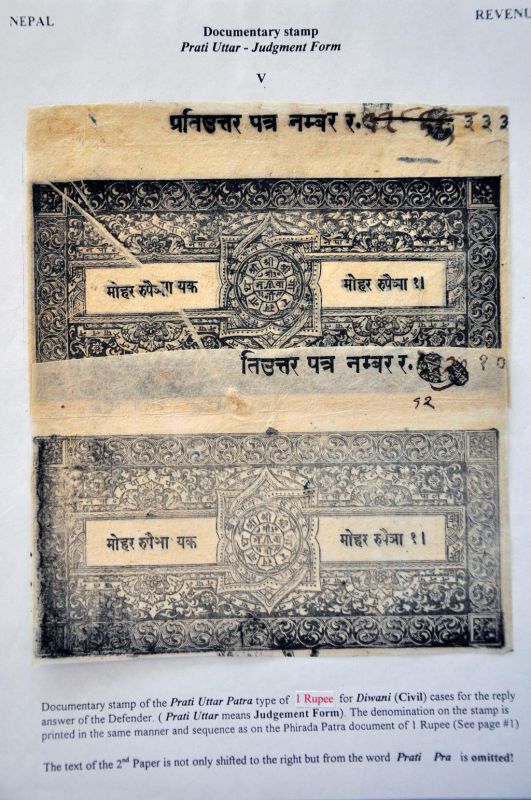 NEPAL
REVENU
Documentary stamp
Prati Uttar - Judgment Form
V
प्रतिउत्तर पत्र नम्बर र. ३ ३ ३
मोहर रुपैञा यक
मोहर रुपैञा १।
तिउत्तर पत्र नम्बर र. १ ०
१२
मोहर रुपैञा यक
मोहर रुपैञा १।
Documentary stamp of the Prati Uttar Patra type of 1 Rupee for Diwani (Civil) cases for the reply
answer of the Defender. ( Prati Uttar means Judgement Form). The denomination on the stamp is
printed in the same manner and sequence as on the Phirada Patra document of 1 Rupee (See page #1)
The text of the 2nd Paper is not only shifted to the right but from the word Prati Pra is omitted!